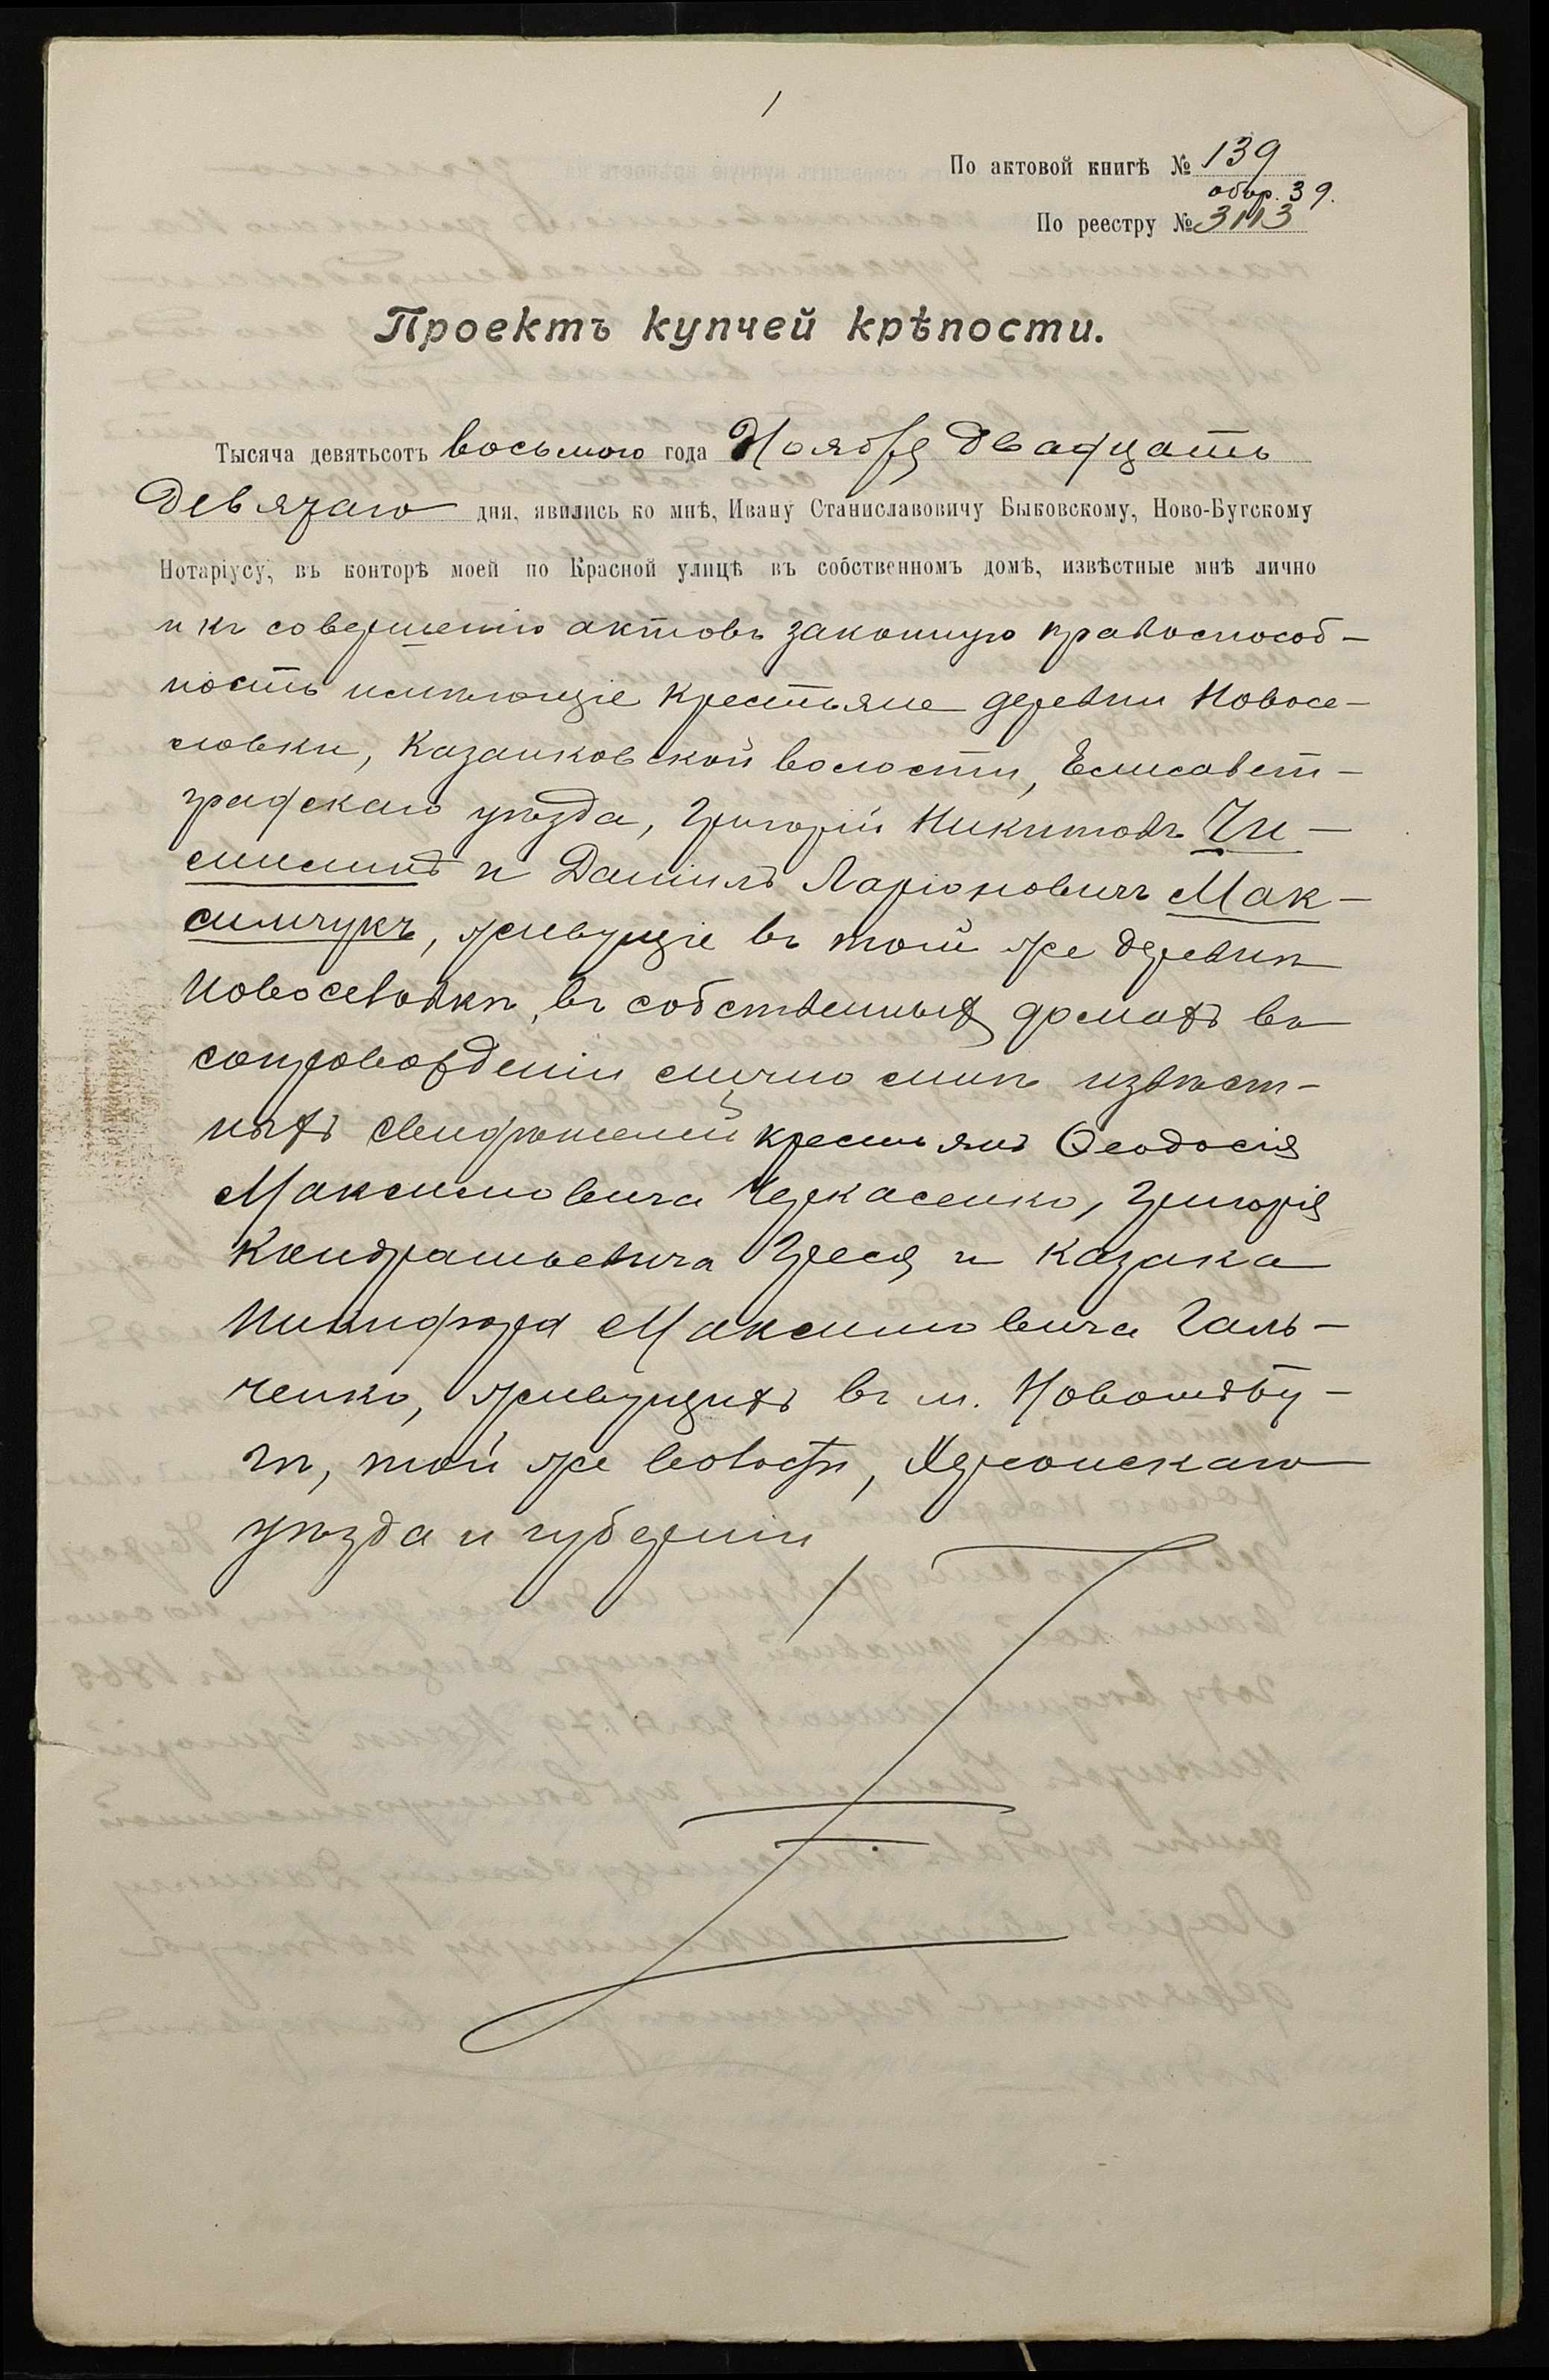 1
По актовой книгѣ № 139
обор. 39.
По реестру № 3113
Проектъ купчей крѣпости.
Тысяча девятьсотъ восьмого года Ноября двадцать
девятаго дня, явились ко мнѣ, Ивану Станиславовичу Быковскому, Ново-Бугскому
Нотаріусу, въ конторѣ моей по Красной улицѣ въ собственномъ домѣ, извѣстные мнѣ лично
и къ совершенію актовъ законную правоспособ-
ность имѣющіе крестьяне деревни Новосе-
ловки, Казанковской волости, Елисавет-
градскаго уѣзда, Григорій Никитовъ
и Даніилъ Ларіоновичъ Мак-
симчукъ, живущіе въ той же деревнѣ
Новоселовкѣ, въ собственныхъ домахъ въ
сопровожденіи лично мнѣ извѣст-
ныхъ свидѣтелей крестьянъ Ѳеодосія
Максимовича Черкасенко, Григорія
Кондратьевича Греся и казака
Никифора Максимовича Галь-
ченко, живущихъ въ м. Новомъ Бу-
гѣ, той же волости, Херсонскаго
уѣзда и губерніи